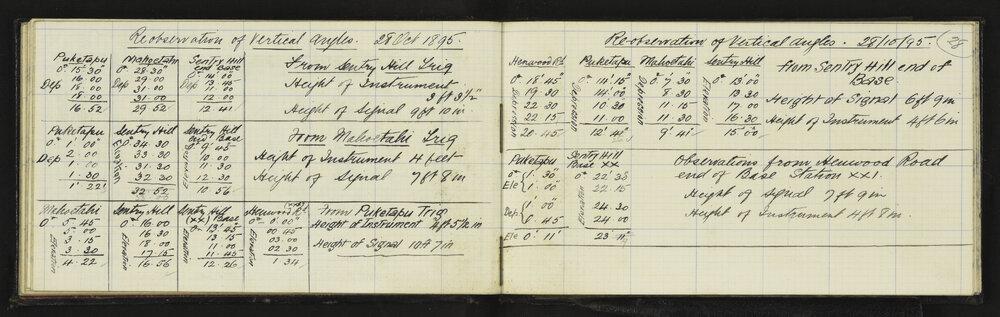 Reobservation of Vertical Angles. 28 Oct 1895.
Puketapu Mahoetahi Sentry Hill
end Base
0° 15' 30" 0° 28' 30" 0° 14' 00"
16. 00 29. 00 13 45
Dep 18. 00 Dep 31. 00 Dep 11 00
18. 00 31. 00 12 00
16. 52 29. 52 12. 41
From Sentry Hill Trig
Height of Instrument
3 ft 3½"
Height of Signal 9 ft 10 in.
Puketapu Sentry Hill Sentry Hill
end Base
0° 1' 00" 0° 34. 30 0° 9'. 45
Dep 2. 00 33. 30 10. 00
31. 30 11. 30
1. 30 32 30 12. 30
1' 22" 32. 52 10. 56
From Mahoetahi Trig
Height of Instrument 4 feet
Height of Signal 7 ft 8 in
Mahoetahi Sentry Hill Sentry Hill
(XX) Base Henwood Rd
(XXI)
0° 5. 45 0° 16. 00 0° 13' 45" 0° 0. 00"
5. 00 16. 30 13 15 00 45
3. 15 18. 00 11. 00 03. 00
3. 30 17. 15 11. 45 02. 30
4. 22 16. 56 12. 26 1. 34
Elevation Elevation Elevation Elevation
From Puketapu Trig
Height of Instrument 4ft 5½ in
Height of Signal 10 ft 7 in
Reobservation of Vertical Angles. 28/10/95. 28
Henwood Rd Puketapu Mahoetahi Sentry Hill
0° 18' 45" 0° 14' 15 0° 7' 30 0° 13' 00
19. 30 14' 00 8 30 13. 30
22. 30 10. 30 11. 15 17. 00
22. 15 11. 00 11. 30 16. 30
20. 45 12' 41" 9' 41" 15' 00
Depression Depression Depression Elevation
From Sentry Hill end of
Base
Height of Signal 6 ft 9 in
Height of Instrument 4 ft 6 in
Puketapu Sentry Hill
Base XX
0° 1'. 30" 0° 22'. 35
Ele 1'. 00 22. 15
1' 00 24. 30
Dep 0 45 24. 00
Ele 0'. 11" 23 11"
Observations from Henwood Road
end of Base Station XXI.
Height of Signal 7 ft 9 in
Height of Instrument 4ft 8 in.